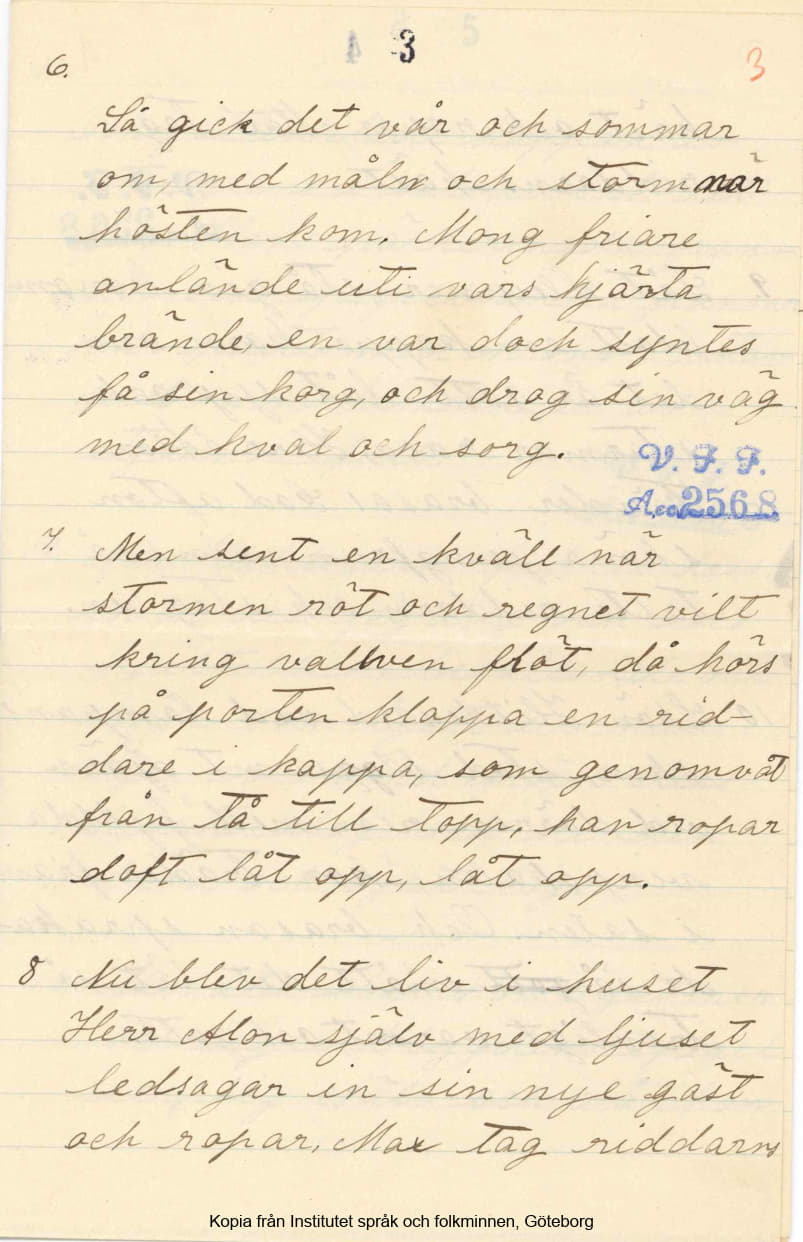 3
3
6.
Så gick det vår och sommar
om, med måln och storm när
hösten kom. Mong friare
anlände uti vars hjärta
brände, en var doch syntes
få sin korg, och drog sin väg
med kval och sorg.
V. F. F.
Acc. 2568
7. Men sent en kväll när
stormen röt och regnet vilt
kring vallven flöt, då hörs
på porten kloppa en rid-
dare i kappa, som genomvåt
från tå till topp, han ropar
doft låt opp, låt opp.
8 Nu blev det liv i huset
Herr Alon själv med ljuset
ledsagar in sin nye gäst
och ropar, Max tag riddarns
Kopia från Institutet språk och folkminnen, Göteborg